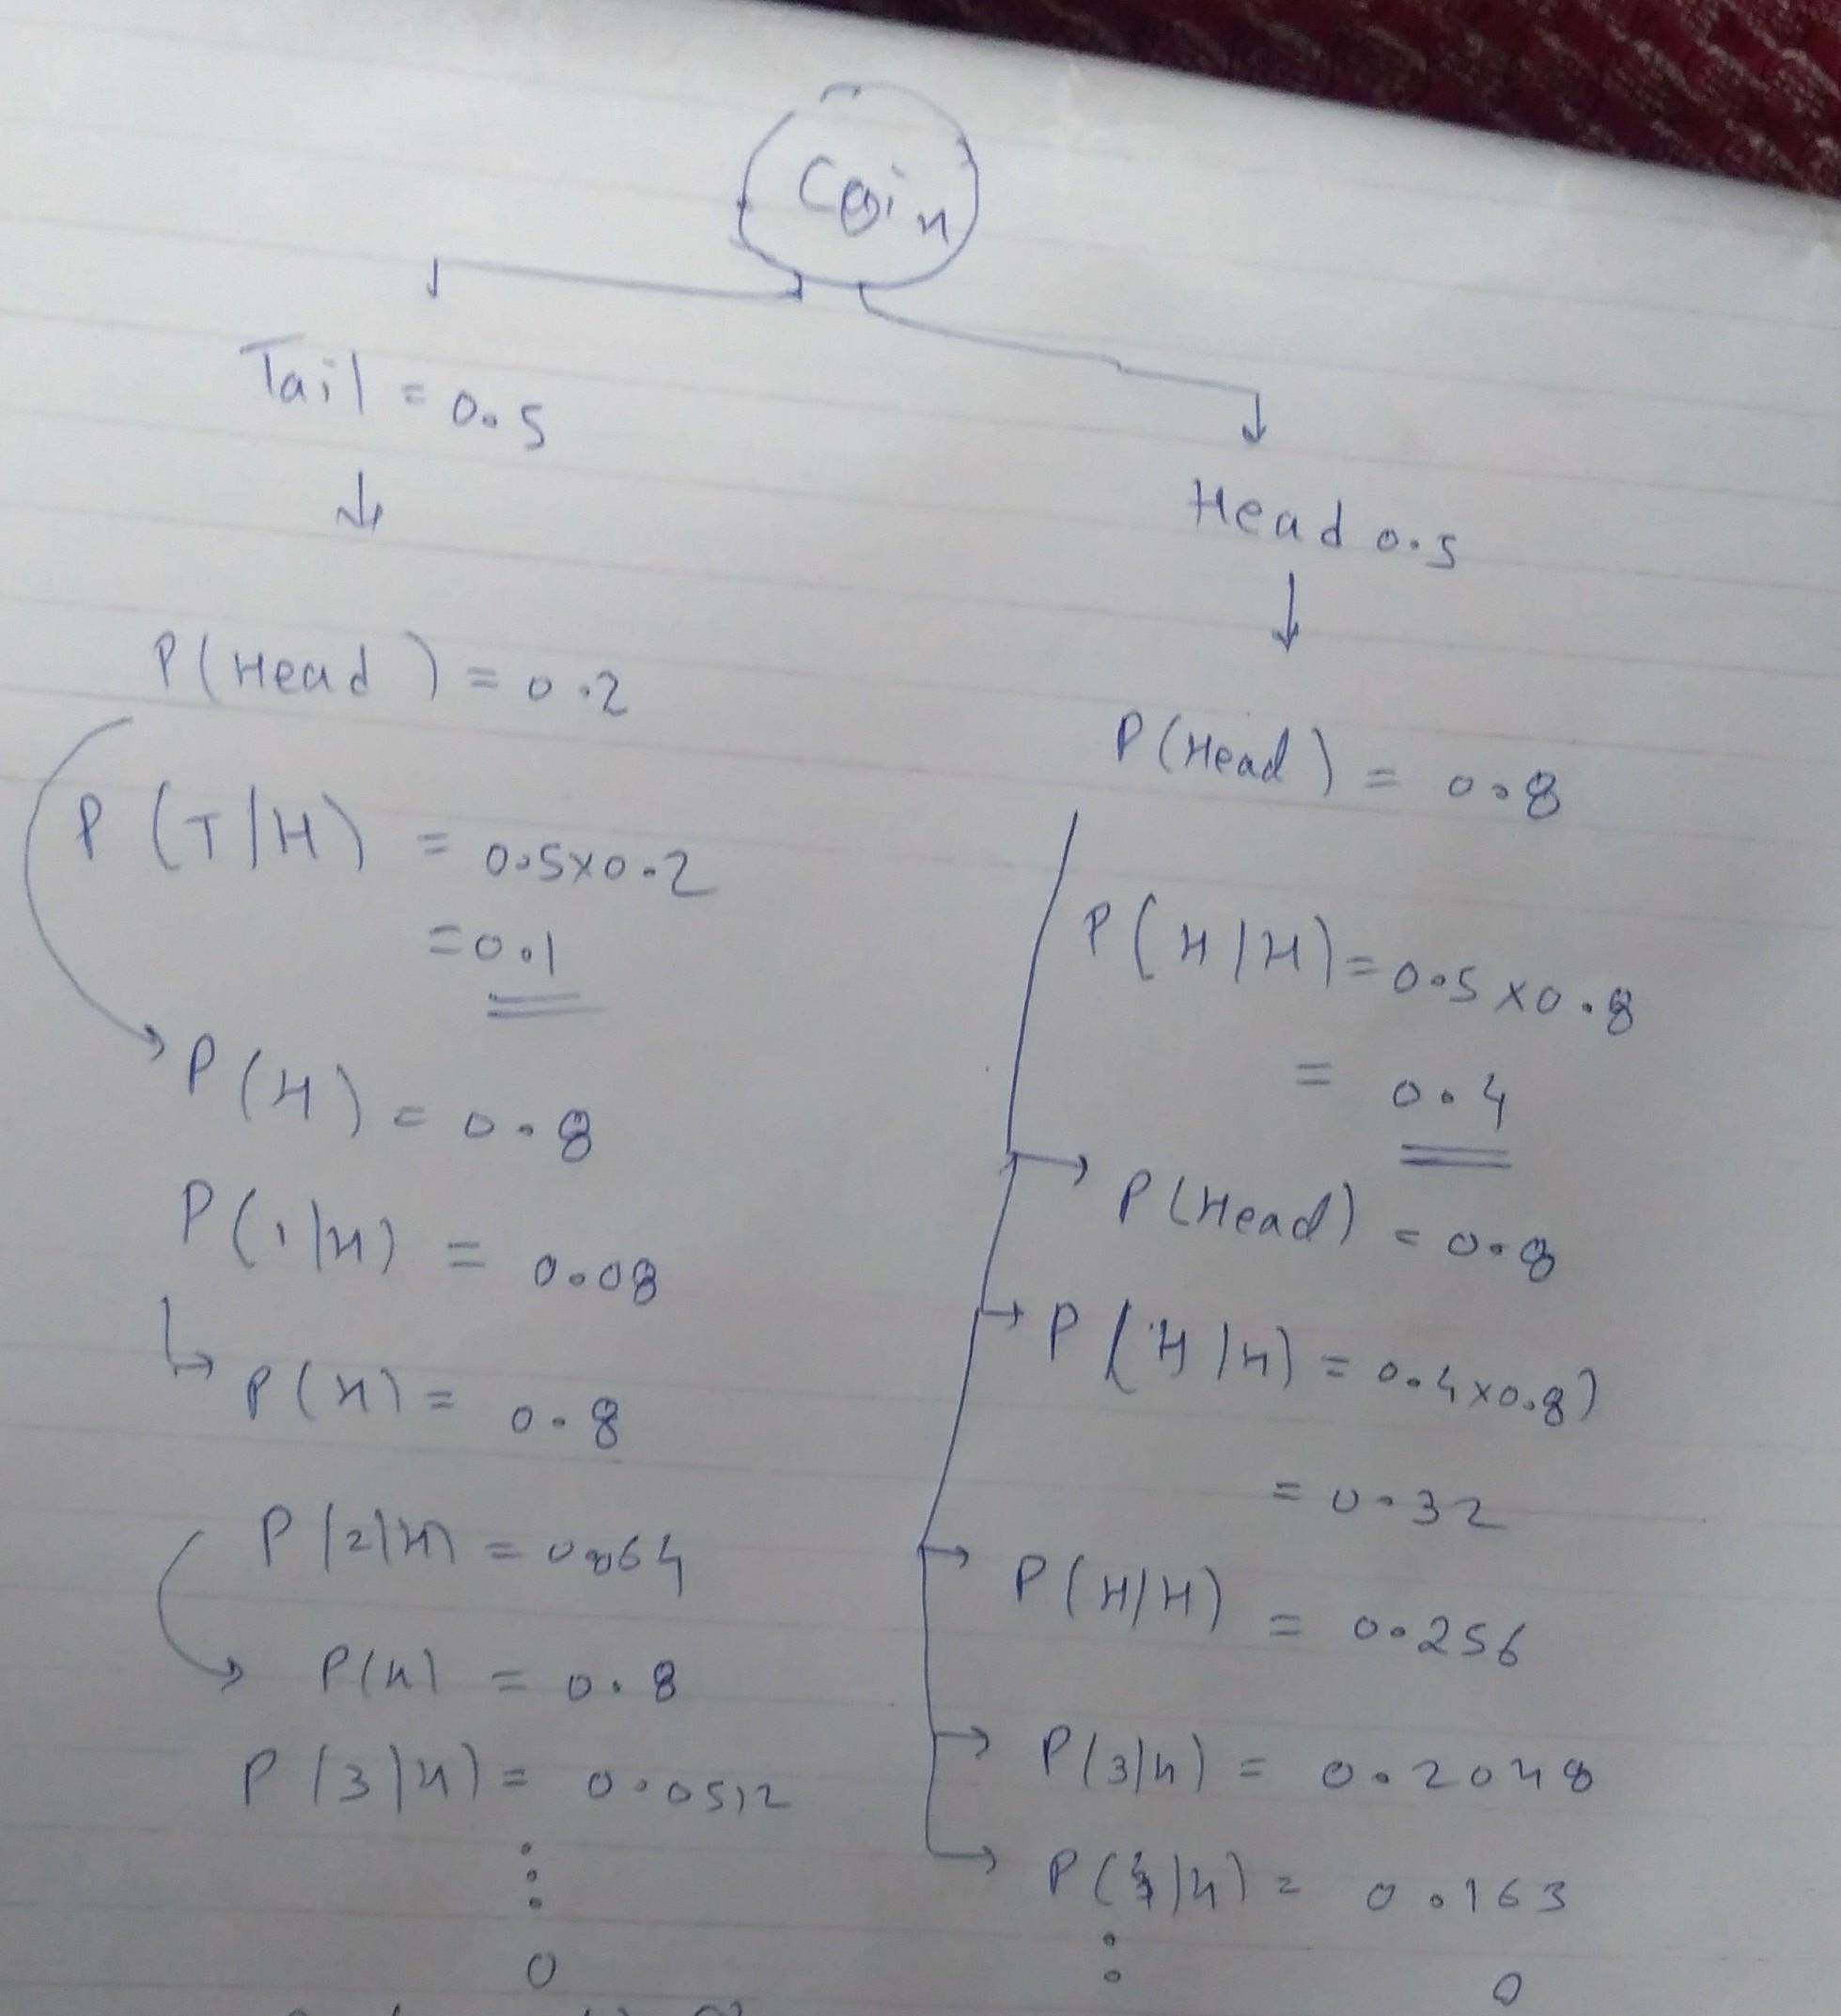 Coin
Tail = 0.5
Head 0.5
P(Head) = 0.2
P(T/H) = 0.5x0.2
= 0.1
P(H) = 0.8
P(1/H) = 0.08
P(H) = 0.8
P(2/H) = 0.064
P(H) = 0.8
P(3/H) = 0.0512
0
P(Head) = 0.8
P(H/H) = 0.5x0.8
= 0.4
P(Head) = 0.8
P(H/H) = 0.4x0.8)
= 0.32
P(H/H) = 0.256
P(3/H) = 0.2048
P(4/H) = 0.163
0